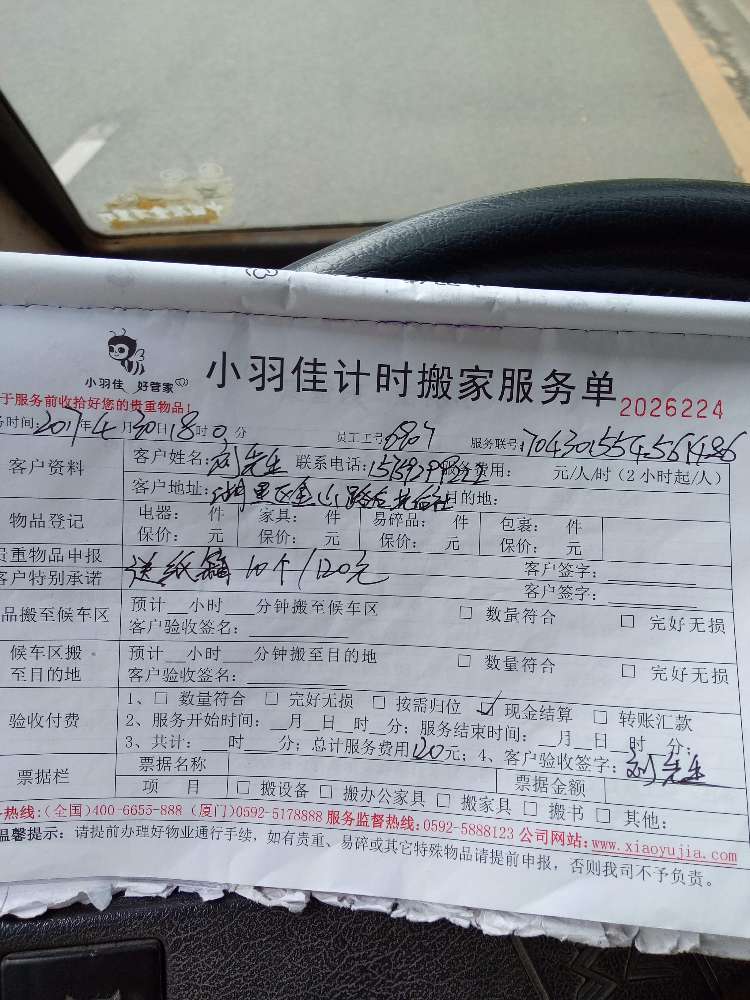 小羽佳 好管家
小羽佳计时搬家服务单 2026224
于服务前收拾好您的贵重物品!
务时间:2017年4月30日18时0分 员工工号6907 服务联号:
客户资料 客户姓名:刘先生 联系电话: 服务费用: 元/人/时(2小时起/人)
客户地址:湖里区金山路 目的地:
物品登记 电器: 件 家具: 件 易碎品: 件 包裹: 件
保价: 元 保价: 元 保价: 元 保价: 元
贵重物品申报 客户签字:
客户特别承诺 送纸箱10个/120元 客户签字:
品搬至候车区 预计__小时__分钟搬至候车区 □ 数量符合 □ 完好无损
客户验收签名:
候车区搬至目的地 预计__小时__分钟搬至目的地 □ 数量符合 □ 完好无损
客户验收签名:
验收付费 1、□ 数量符合 □ 完好无损 □ 按需归位 ☑ 现金结算 □ 转账汇款
2、服务开始时间:__月__日__时__分;服务结束时间:__月__日__时__分;
3、共计:__时__分;总计服务费用120元;4、客户验收签字:刘先生
票据栏 票据名称 票据金额
项 目 □ 搬设备 □ 搬办公家具 □ 搬家具 □ 搬书 □ 其他:
热线:(全国)400-6655-888 (厦门)0592-5178888 服务监督热线:0592-5888123 公司网站:www.xiaoyujia.com
温馨提示:请提前办理好物业通行手续,如有贵重、易碎或其它特殊物品请提前申报,否则我司不予负责。